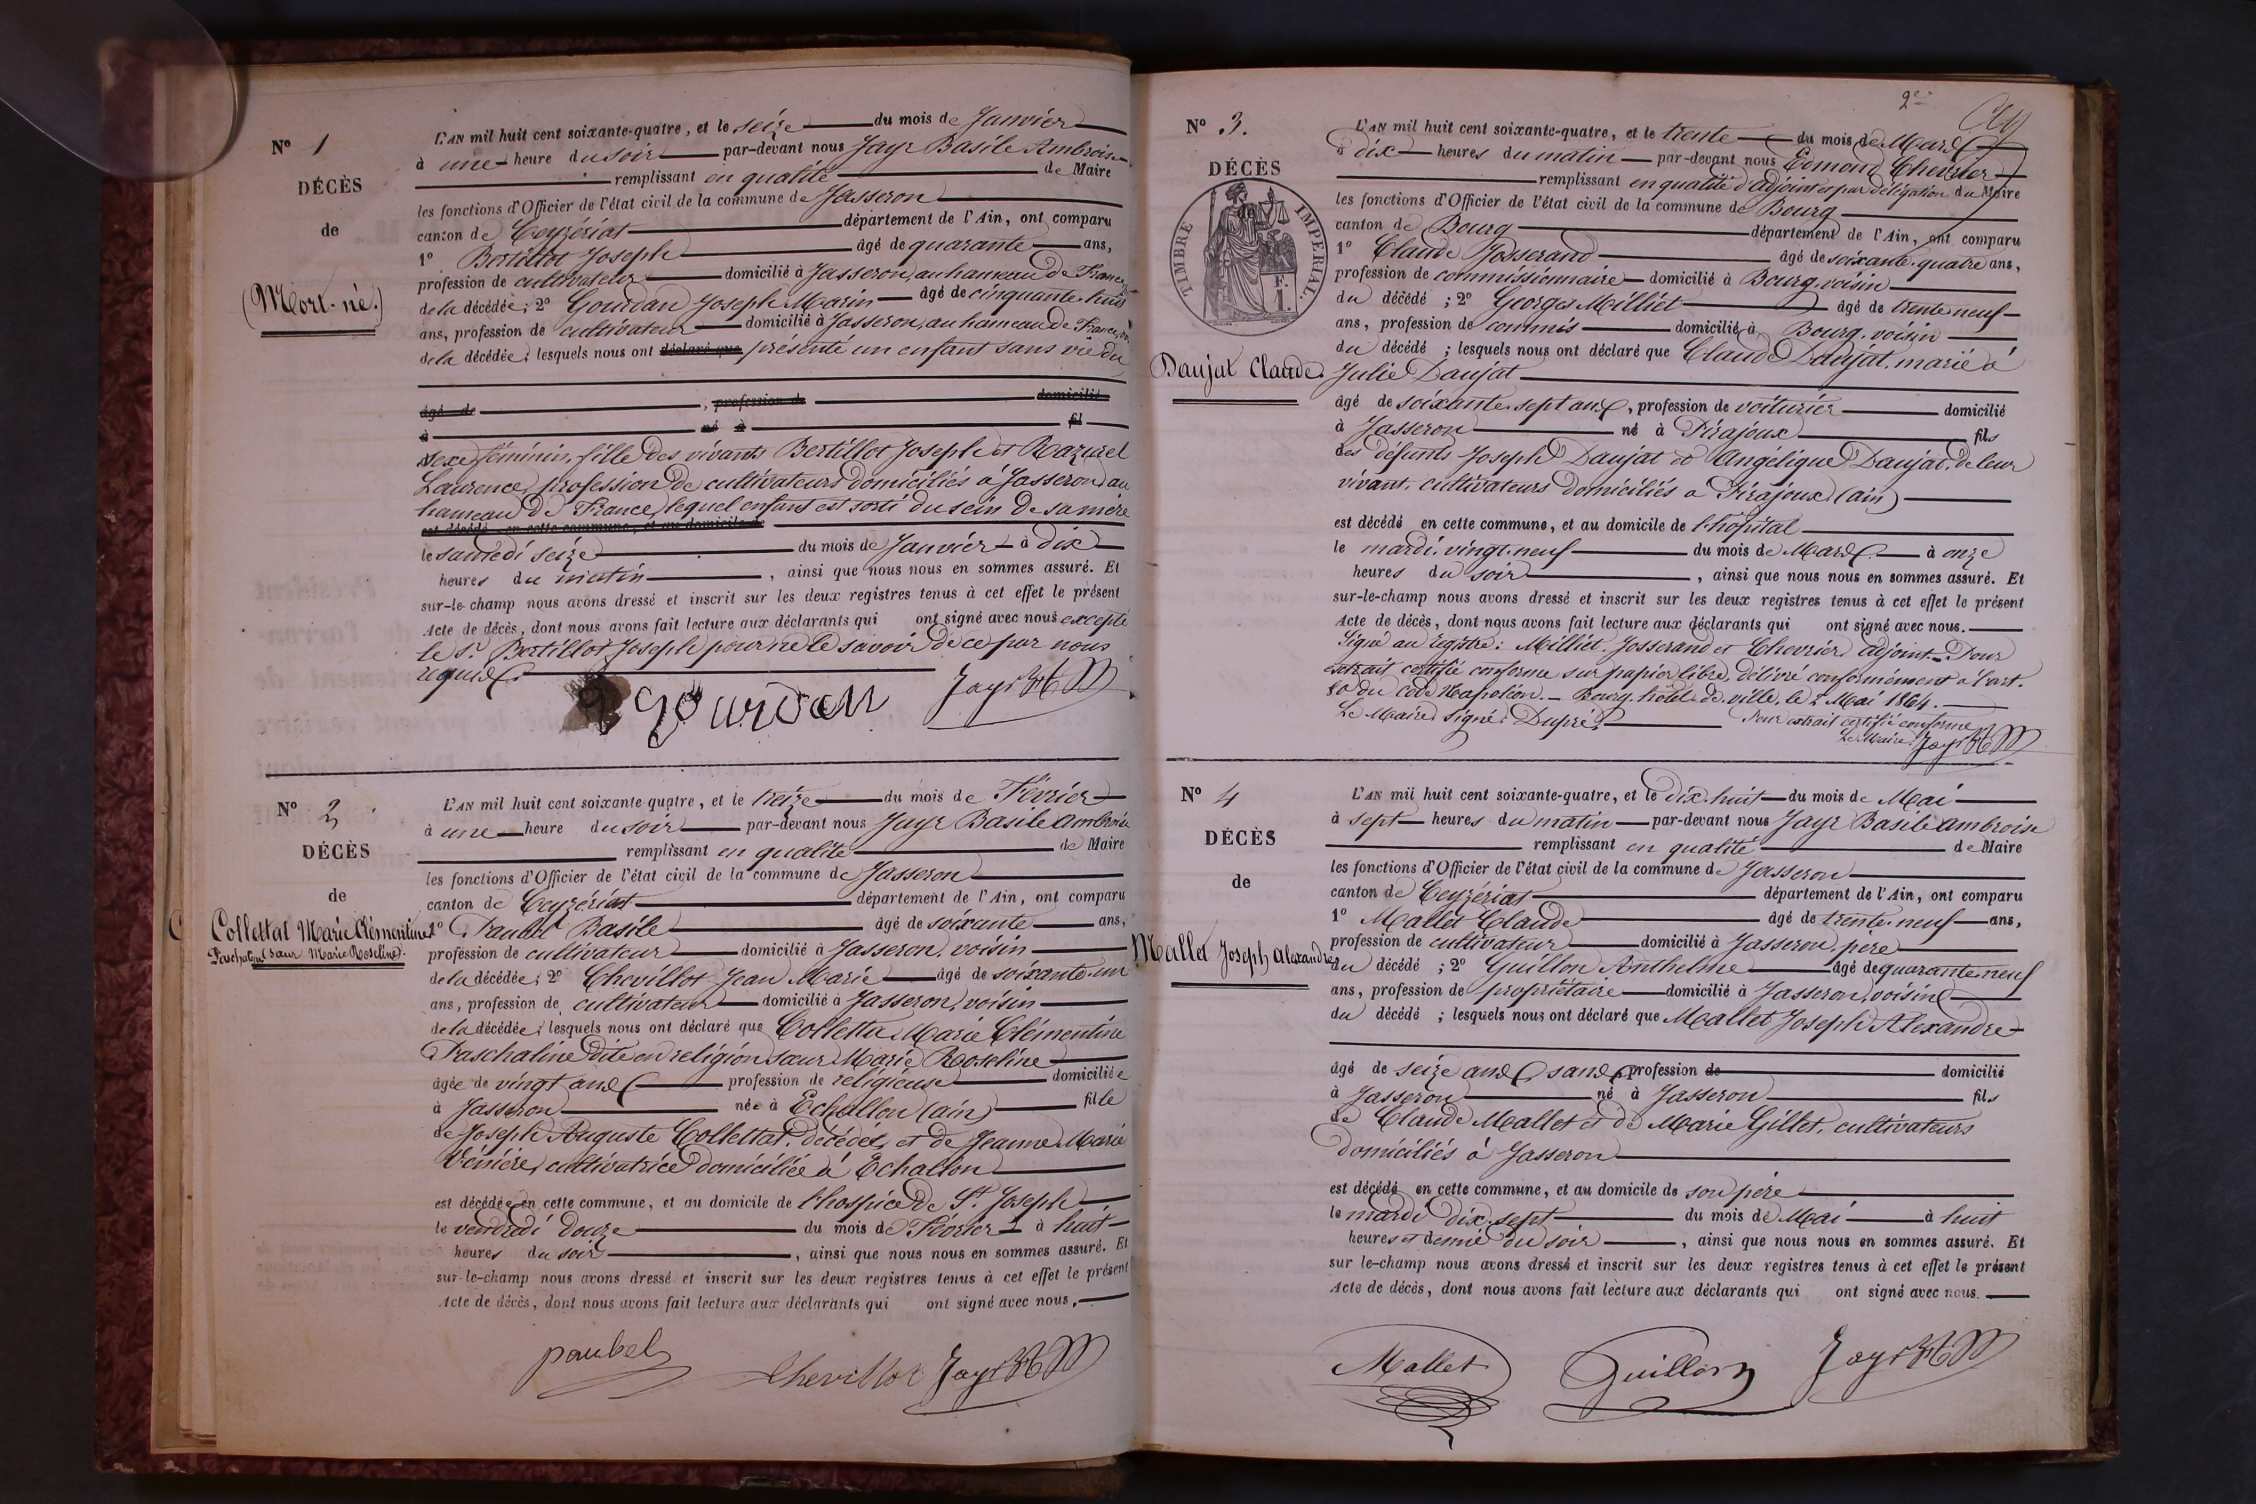 N° 1
DÉCÈS
de
(Mort-né.)
L'AN mil huit cent soixante-quatre, et le seize du mois de Janvier
à une heure du soir par-devant nous Jayr Basile Ambroise
remplissant en qualité de Maire
les fonctions d'Officier de l'état civil de la commune de Jasseron
canton de Ceyzériat département de l'Ain, ont comparu
1° Bertillot Joseph âgé de quarante ans,
profession de cultivateur domicilié à Jasseron, au hameau de France,
de la décédée; 2° Gourdan Joseph Marin âgé de cinquante-huit
ans, profession de cultivateur domicilié à Jasseron, au hameau de France,
de la décédée; lesquels nous ont déclaré que présenté un enfant sans vie du
âgé de , profession de domicilié
à né à fil
sexe féminin, fille des vivants Bertillot Joseph et Razurel
Laurence, profession de cultivateurs domiciliés à Jasseron, au
hameau de France, lequel enfant est sorti du sein de sa mère
est décédé en cette commune, et au domicile de
le samedi seize du mois de Janvier à dix
heures du matin , ainsi que nous nous en sommes assuré. Et
sur-le-champ nous avons dressé et inscrit sur les deux registres tenus à cet effet le présent
Acte de décès, dont nous avons fait lecture aux déclarants qui ont signé avec nous excepté
le Sr. Bertillot Joseph pour ne le savoir de ce par nous
requis.
Gourdan Jayr
N° 2
DÉCÈS
de
Collettat Marie Clémentine
Paschaline (sœur Marie Roseline).
L'AN mil huit cent soixante-quatre, et le treize du mois de Février
à une heure du soir par-devant nous Jayr Basile Ambroise
remplissant en qualité de Maire
les fonctions d'Officier de l'état civil de la commune de Jasseron
canton de Ceyzériat département de l'Ain, ont comparu
1° Paubel Basile âgé de soixante ans,
profession de cultivateur domicilié à Jasseron, voisin
de la décédée; 2° Chevillot Jean Marie âgé de soixante-un
ans, profession de cultivateur domicilié à Jasseron, voisin
de la décédée; lesquels nous ont déclaré que Collettat Marie Clémentine
Paschaline dite en religion sœur Marie Roseline
âgée de vingt ans profession de religieuse domiciliée
à Jasseron née à Echallon (ain) fille
de Joseph Auguste Collettat, décédé, et de Jeanne Marie
cultivatrice domiciliée à Echallon
est décédée en cette commune, et au domicile de l'hospice de St. Joseph
le vendredi douze du mois de Février à huit
heures du soir , ainsi que nous nous en sommes assuré. Et
sur-le-champ nous avons dressé et inscrit sur les deux registres tenus à cet effet le présent
Acte de décès, dont nous avons fait lecture aux déclarants qui ont signé avec nous.
paubel Chevillot Jayr
2e
N° 3.
DÉCÈS
TIMBRE IMPÉRIAL.
F.
1.
Daujat Claude
L'AN mil huit cent soixante-quatre, et le trente du mois de Mars
à dix heures du matin par-devant nous Edmond Chevrier
remplissant en qualité d'adjoint et par délégation du Maire
les fonctions d'Officier de l'état civil de la commune de Bourg
canton de Bourg département de l'Ain, ont comparu
1° Claude Josserand âgé de soixante-quatre ans,
profession de commissionnaire domicilié à Bourg, voisin
du décédé ; 2° Georges Milliet âgé de trente-neuf
ans, profession de commis domicilié à Bourg, voisin
du décédé ; lesquels nous ont déclaré que Claude Daujat, marié à
Julie Daujat
âgé de soixante-sept ans, profession de voiturier domicilié
à Jasseron né à Pirajoux fils
des défunts Joseph Daujat et Angélique Daujat, de leur
vivant, cultivateurs domiciliés à Pirajoux (ain)
est décédé en cette commune, et au domicile de l'hôpital
le mardi vingt-neuf du mois de Mars à onze
heures du soir , ainsi que nous nous en sommes assuré. Et
sur-le-champ nous avons dressé et inscrit sur les deux registres tenus à cet effet le présent
Acte de décès, dont nous avons fait lecture aux déclarants qui ont signé avec nous.
Signé au registre: Milliet, Josserand et Chevrier adjoint. Pour
extrait certifié conforme sur papier libre, délivré conformément à l'art.
80 du code Napoléon. — Bourg, hôtel de ville, le 2 Mai 1864.
Le Maire signé: Dupré. Pour extrait certifié conforme
Le Maire: Jayr
N° 4
DÉCÈS
de
Mallet Joseph Alexandre
L'AN mil huit cent soixante-quatre, et le dix-huit du mois de Mai
à sept heures du matin par-devant nous Jayr Basile Ambroise
remplissant en qualité de Maire
les fonctions d'Officier de l'état civil de la commune de Jasseron
canton de Ceyzériat département de l'Ain, ont comparu
1° Mallet Claude âgé de trente-neuf ans,
profession de cultivateur domicilié à Jasseron, père
du décédé ; 2° Guillon Anthelme âgé de quarante-neuf
ans, profession de propriétaire domicilié à Jasseron, voisin
du décédé ; lesquels nous ont déclaré que Mallet Joseph Alexandre
âgé de seize ans, sans profession de domicilié
à Jasseron né à Jasseron fils
de Claude Mallet et de Marie Gillet, cultivateurs
domiciliés à Jasseron
est décédé en cette commune, et au domicile de son père
le mardi dix-sept du mois de Mai à huit
heures et demie du soir , ainsi que nous nous en sommes assuré. Et
sur le-champ nous avons dressé et inscrit sur les deux registres tenus à cet effet le présent
Acte de décès, dont nous avons fait lecture aux déclarants qui ont signé avec nous.
Mallet Guillon Jayr